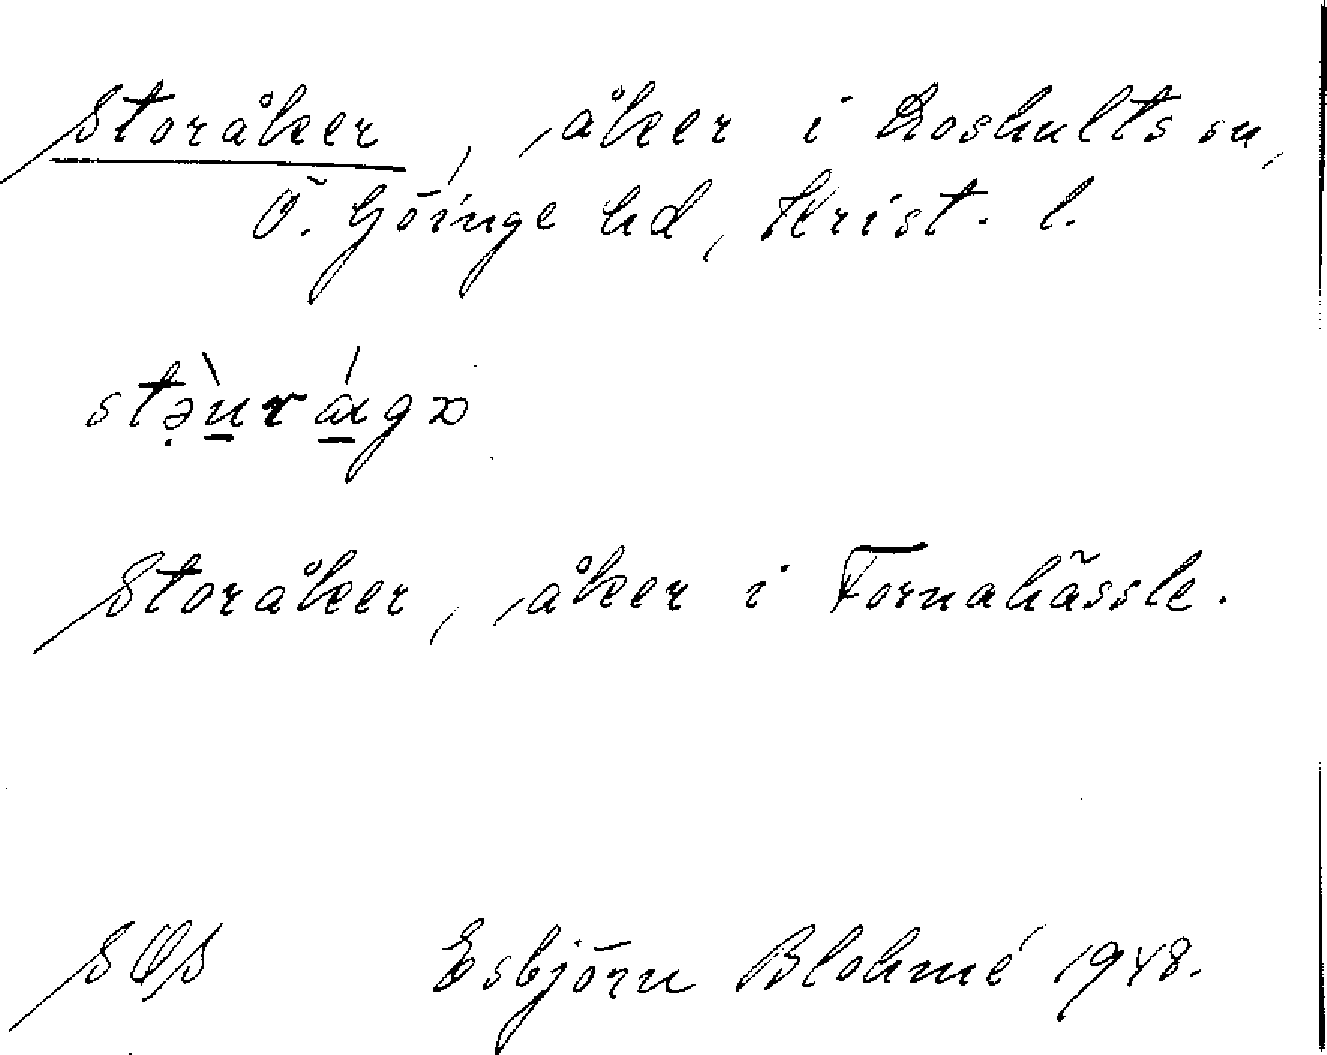 Storåker, åker i Loshults sn,
Ö. Göinge hd, Krist. l.
Storåker, åker i Fornahässle.
SOS Esbjörn Blohmé 1948.